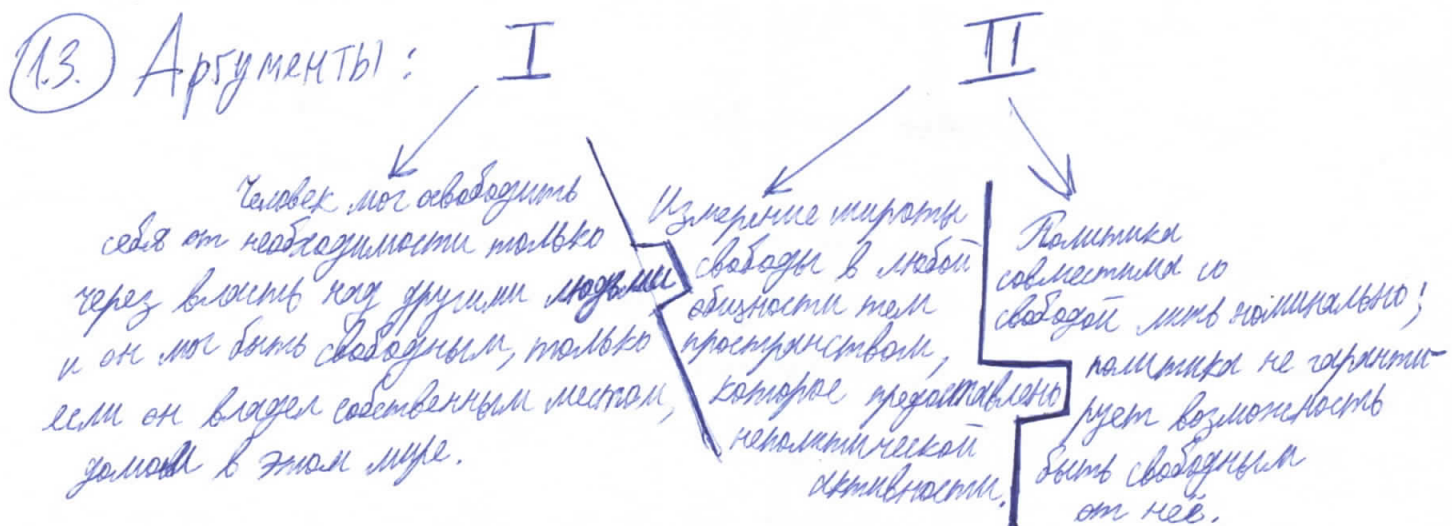 1.3. Аргументы: I II
Человек мог освободить
себя от необходимости только
через власть над другими людьми
и он мог быть свободным, только
если он владел собственным местом,
домом в этом мире.
Измерение широты
свободы в любой
общности тем
пространством,
которое предоставлено
неполитической
активности.
Политика
совместима со
свободой лишь номинально;
политика не гаранти-
рует возможность
быть свободным
от неё.